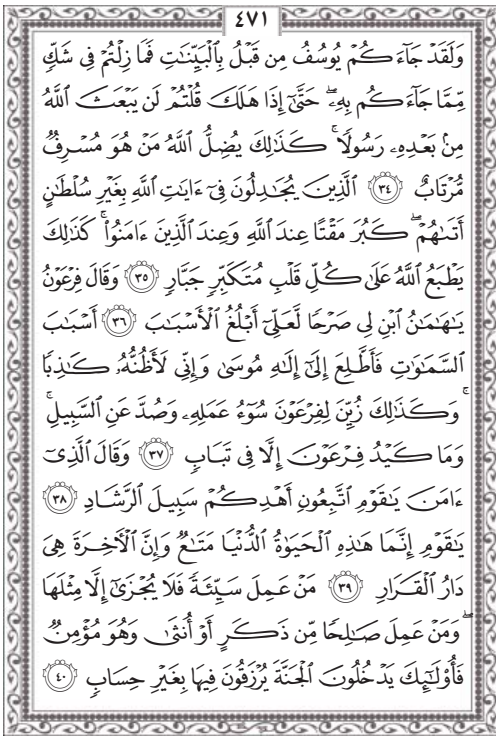 ٤٧١
وَلَقَدْ جَآءَكُمْ يُوسُفُ مِن قَبْلُ بِالْبَيِّنَٰتِ فَمَا زِلْتُمْ فِى شَكٍّ
مِّمَّا جَآءَكُم بِهِۦ ۖ حَتَّىٰٓ إِذَا هَلَكَ قُلْتُمْ لَن يَبْعَثَ اللَّهُ
مِنۢ بَعْدِهِۦ رَسُولًا ۚ كَذَٰلِكَ يُضِلُّ اللَّهُ مَنْ هُوَ مُسْرِفٌ
مُّرْتَابٌ ٣٤ الَّذِينَ يُجَٰدِلُونَ فِىٓ ءَايَٰتِ اللَّهِ بِغَيْرِ سُلْطَٰنٍ
أَتَىٰهُمْ ۖ كَبُرَ مَقْتًا عِندَ اللَّهِ وَعِندَ الَّذِينَ ءَامَنُوا۟ ۚ كَذَٰلِكَ
يَطْبَعُ اللَّهُ عَلَىٰ كُلِّ قَلْبِ مُتَكَبِّرٍ جَبَّارٍ ٣٥ وَقَالَ فِرْعَوْنُ
يَٰهَٰمَٰنُ ابْنِ لِى صَرْحًا لَّعَلِّىٓ أَبْلُغُ الْأَسْبَٰبَ ٣٦ أَسْبَٰبَ
السَّمَٰوَٰتِ فَأَطَّلِعَ إِلَىٰٓ إِلَٰهِ مُوسَىٰ وَإِنِّى لَأَظُنُّهُۥ كَٰذِبًا
ۚ وَكَذَٰلِكَ زُيِّنَ لِفِرْعَوْنَ سُوٓءُ عَمَلِهِۦ وَصُدَّ عَنِ السَّبِيلِ ۚ
وَمَا كَيْدُ فِرْعَوْنَ إِلَّا فِى تَبَابٍ ٣٧ وَقَالَ الَّذِىٓ
ءَامَنَ يَٰقَوْمِ اتَّبِعُونِ أَهْدِكُمْ سَبِيلَ الرَّشَادِ ٣٨
يَٰقَوْمِ إِنَّمَا هَٰذِهِ الْحَيَوٰةُ الدُّنْيَا مَتَٰعٌ وَإِنَّ الْءَاخِرَةَ هِىَ
دَارُ الْقَرَارِ ٣٩ مَنْ عَمِلَ سَيِّئَةً فَلَا يُجْزَىٰٓ إِلَّا مِثْلَهَا
ۖ وَمَنْ عَمِلَ صَٰلِحًا مِّن ذَكَرٍ أَوْ أُنثَىٰ وَهُوَ مُؤْمِنٌ
فَأُو۟لَٰٓئِكَ يَدْخُلُونَ الْجَنَّةَ يُرْزَقُونَ فِيهَا بِغَيْرِ حِسَابٍ ٤٠